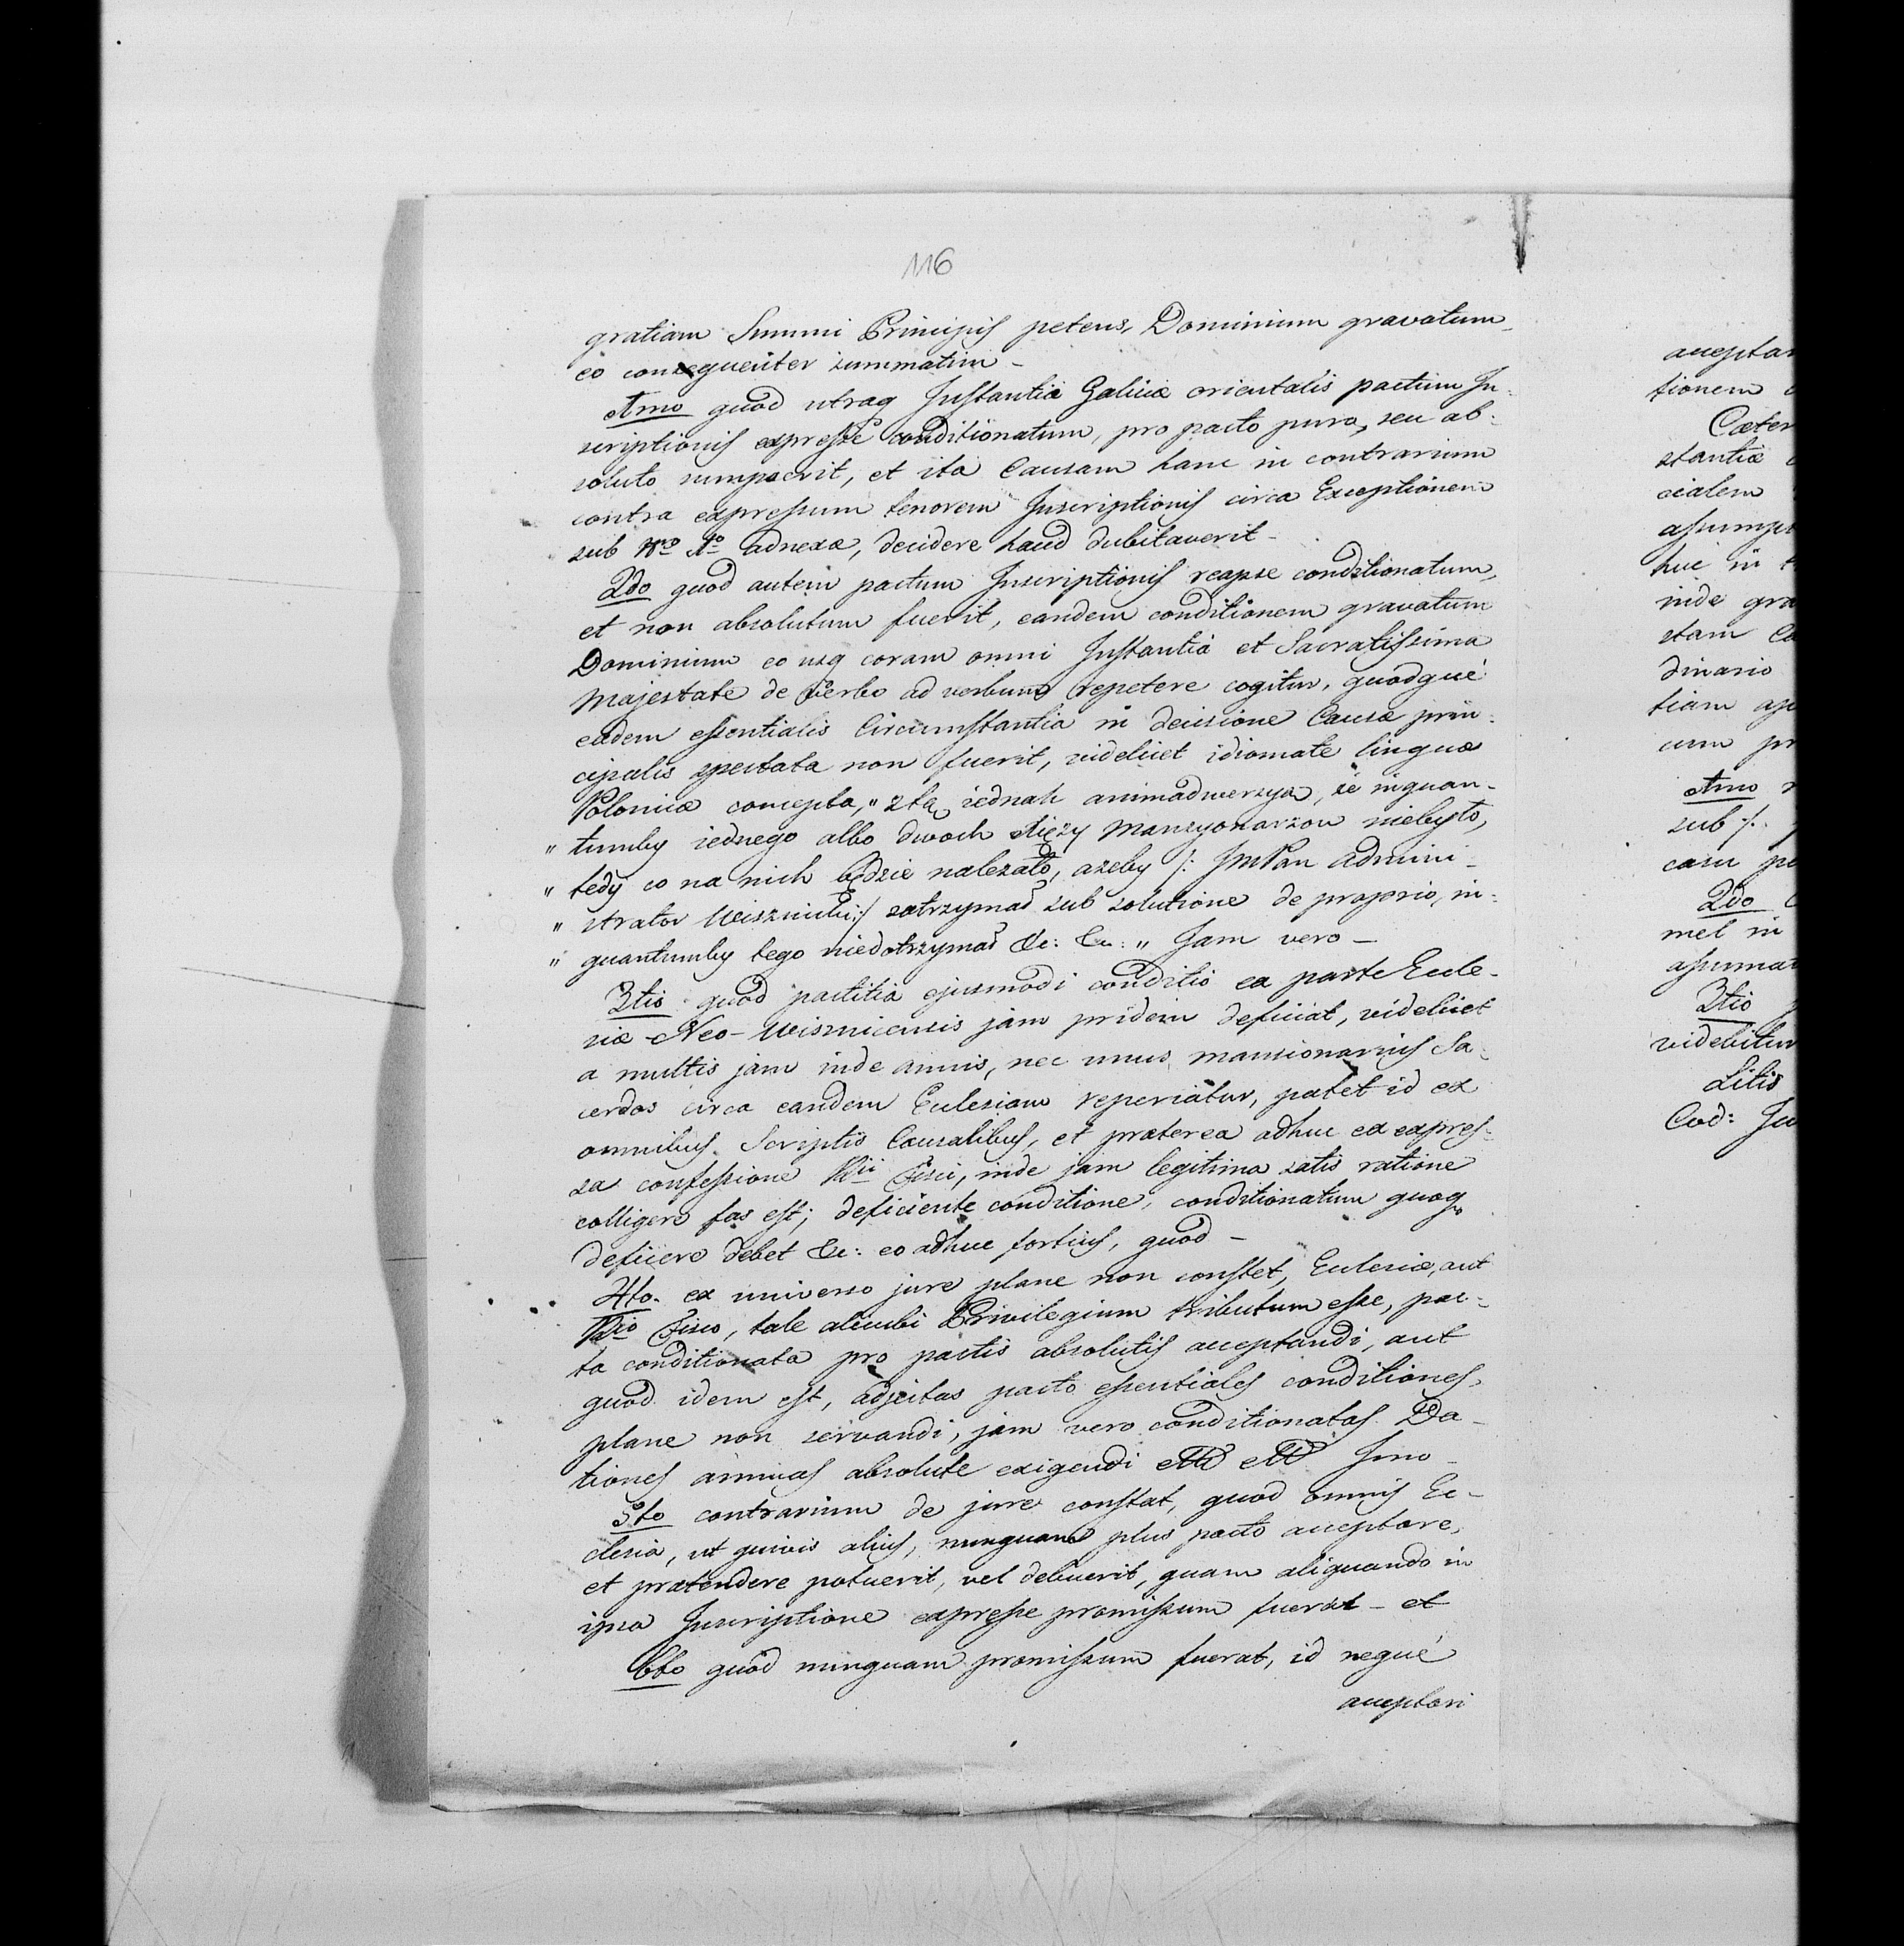 116
gratiam Summi Principis petens, Dominium gravatum
eo consequenter summatim –
Imo quod utraq Instantia Galiciæ orientalis pactum In-
scriptionis expresse conditionatum, pro pacto puro, seu ab-
soluto sumpserit, et ita Causam hanc in contrarium
contra expressum tenorem Inscriptionis circa Exceptionem
sub Nro 1o adnexæ, decidere haud dubitaverit –
2do quod autem pactum Inscriptionis reapse conditionatum,
et non absolutum fuerit, eandem conditionem gravatum
Dominium eo usq coram omni Instantiâ et Sacratissima
Majestate de verbo ad verbum repetere cogitur, quodque
eadem essentialis Circumstantia in decisione Causæ prin-
cipalis spectata non fuerit, videlicet idiomate linguæ
Polonicæ concepta, „ z tą iednak animadwersyą, że inquan-
„ tumby iednego albo dwoch Xięży Mansyonarzow niebyło,
„ tedy co na nich będzie należało, ażeby /: JmPan Admini-
„ strator Wisznicki :/ zatrzymał sub solutione de proprio, in-
„ quantumby tego niedotrzymał &c: &c: „ Jam vero –
3tio quod pactitia ejusmodi conditio ex parte Eccle-
siæ Neo-Wisznicensis jam pridem deficiat, videlicet
a multis jam inde annis, nec unus mansionarius Sa-
cerdos circa eandem Eclesiam reperiatur, patet id ex
omnibus Scriptis Causalibus, et præterea adhuc ex expres-
sa confessione Rii Fisci, inde jam legitima satis ratione
colligere fas est; deficiente conditione, conditionatum quoq
deficere debet &c: eo adhuc fortius, quod –
4to. ex universo jure plane non constet, Eclesiæ, aut
Rio Fisco, tale alicubi Privilegium tributum esse, pac-
ta conditionata pro pactis absolutis acceptandi, aut
quod idem est, adjectas pacto essentiales conditiones,
plane non servandi, jam vero conditionatas Da-
tiones annuas absolute exigendi Imo –
5to contrarium de jure constat, quod omnis Ec-
clesia, ut quivis alius, nunquam plus pacto acceptare,
et prætendere potuerit, vel debuerit, quam aliquando in
ipsa Inscriptione expresse promissum fuerat – et
6to quod nunquam promissum fuerat, id neque
acceptari
acceptan
tionem
Cæter
stantiæ
cialem
assumpt
huc in
inde gra
stam Ca
dinario
tiam ap
cum pr
Imo
sub /.
casu pe
2do
mel in
assumat
3tio
videbitur
Litis
Cod: Ju